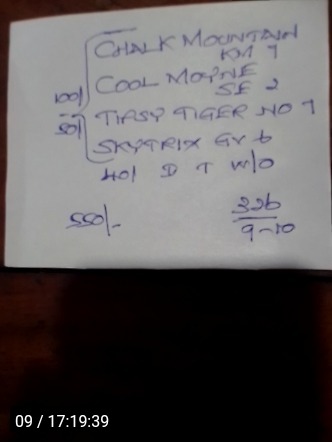 CHALK MOUNTAIN
KM 7
COOL MOYNE
SE 2
100/
50/
TIPSY TIGER NO 7
SKYTRIX GV 6
40/ D T W/O
550/-
326
9-10
09 / 17:19:39